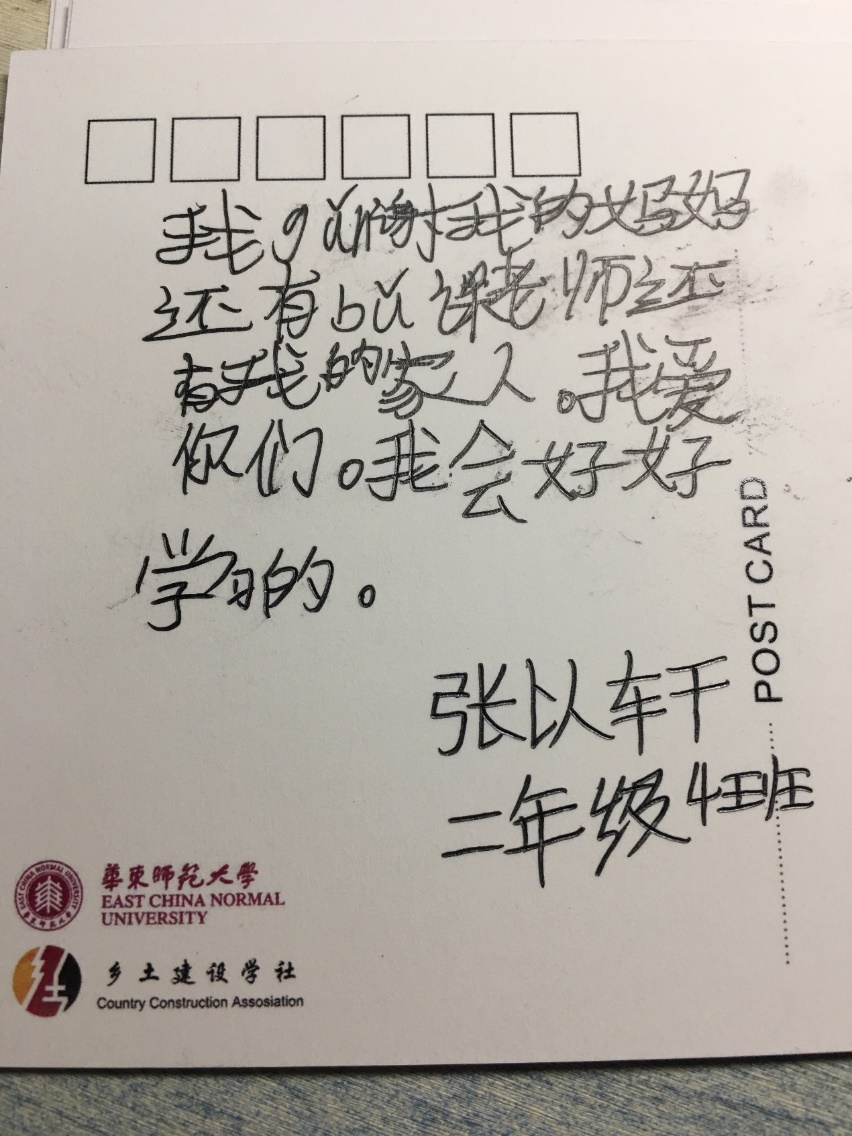 我gǎn谢我的妈妈
还有bǔ课老师还
有我的家人。我爱
你们。我会好好
学习的。
张以轩
二年级4班
POST CARD
EAST CHINA NORMAL UNIVERSITY
華東師範大學
EAST CHINA NORMAL
UNIVERSITY
乡土建设学社
Country Construction Assosiation